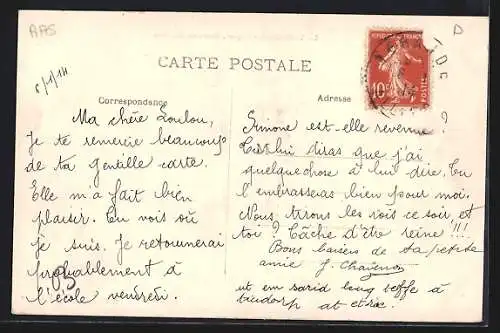 AAS
D
CARTE POSTALE
Correspondance
Adresse
REPUBLIQUE FRANÇAISE
10c
Ma chère Loulou,
Je te remercie beaucoup
de ta gentille carte.
Elle m'a fait bien
plaisir. Tu vois où
je suis. Je retournerai
probablement à
l'école vendredi.
Simone est-elle revenue ?
Tu lui diras que j'ai
quelque chose à lui dire. Tu
l'embrasseras bien pour moi.
Nous tirons les rois ce soir, et
toi ? Tâche d'être reine !!!
Bons baisers de ta petite
amie J.
ut em
à
at